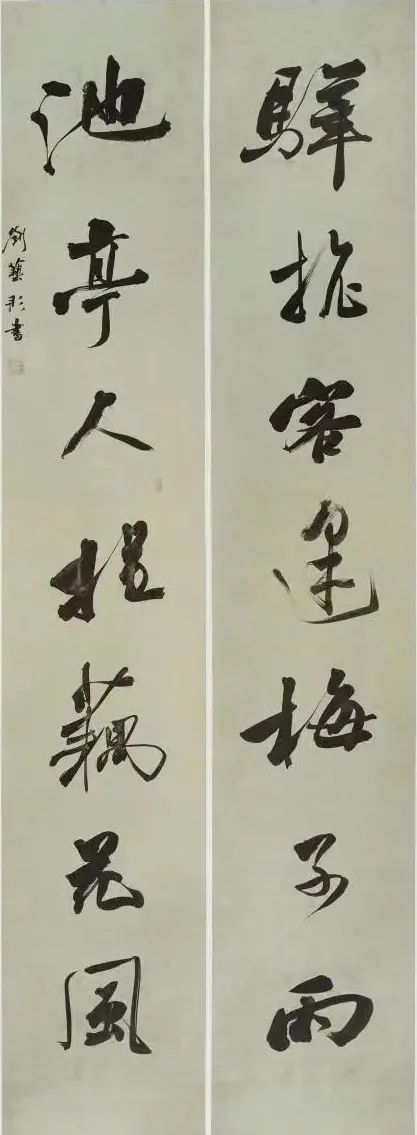 驛客逢梅子雨
池亭人挹藕花風
劉藝書